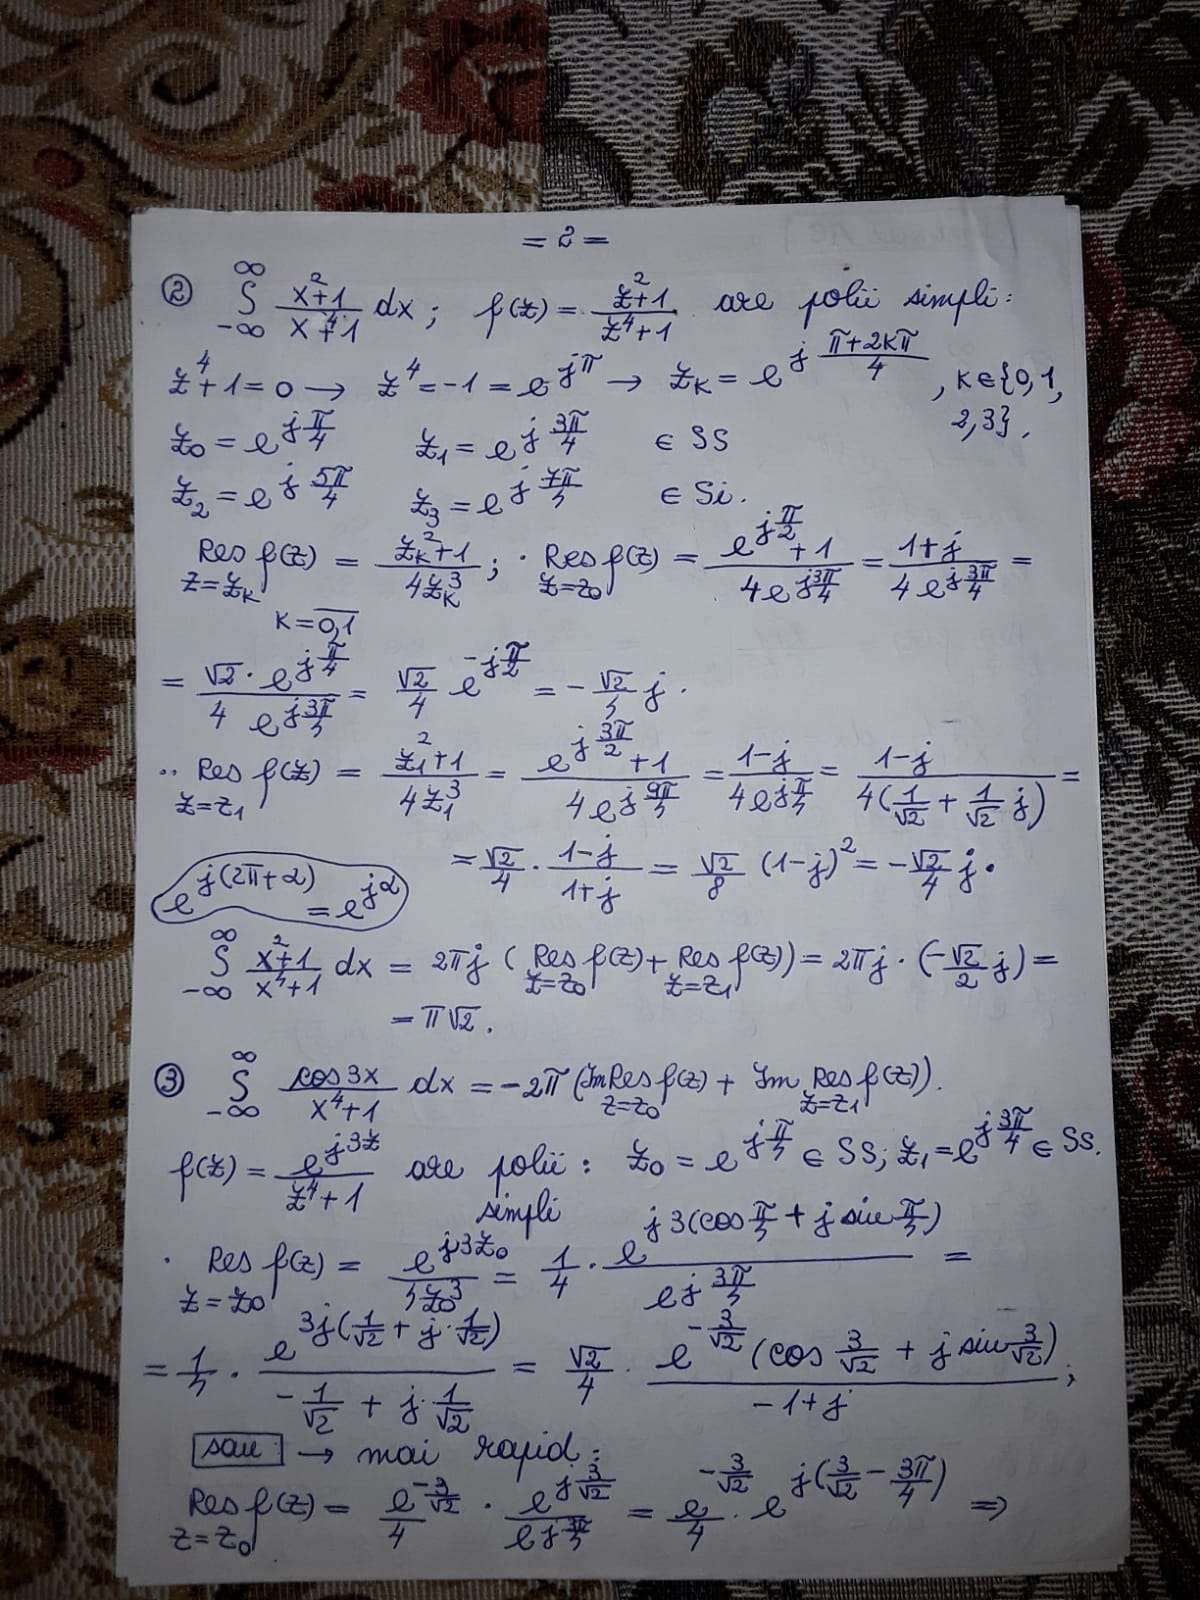 = 2 =
② ∫_{-∞}^{∞} (x²+1)/(x⁴+1) dx ; f(z) = (z²+1)/(z⁴+1) are polii simpli:
z⁴+1=0 → z⁴=-1=e^{jπ} → z_k = e^{j (π+2kπ)/4}, k∈{0,1,
2,3}.
z₀ = e^{j π/4} z₁ = e^{j 3π/4} ∈ SS
z₂ = e^{j 5π/4} z₃ = e^{j 7π/4} ∈ Si.
Res_{z=z_k} f(z) = (z_k²+1)/(4z_k³) ; · Res_{z=z₀} f(z) = (e^{j π/2}+1)/(4e^{j 3π/4}) = (1+j)/(4e^{j 3π/4}) =
k=\overline{0,1}
= (√2 · e^{j π/4})/(4 e^{j 3π/4}) = √2/4 e^{-j π/2} = -√2/4 j .
·· Res_{z=z₁} f(z) = (z₁²+1)/(4z₁³) = (e^{j 3π/2}+1)/(4e^{j 9π/4}) = (1-j)/(4e^{j π/4}) = (1-j)/(4(1/√2 + 1/√2 j)) =
= √2/4 · (1-j)/(1+j) = √2/8 (1-j)² = -√2/4 j .
e^{j(2π+α)} = e^{jα}
∫_{-∞}^{∞} (x²+1)/(x⁴+1) dx = 2πj ( Res_{z=z₀} f(z) + Res_{z=z₁} f(z)) = 2πj · (-√2/2 j) =
= π√2 .
③ ∫_{-∞}^{∞} cos3x/(x⁴+1) dx = -2π (Im Res_{z=z₀} f(z) + Im Res_{z=z₁} f(z)).
f(z) = e^{j3z}/(z⁴+1) are polii : z₀ = e^{j π/4} ∈ SS; z₁ = e^{j 3π/4} ∈ SS.
simpli
· Res_{z=z₀} f(z) = e^{j3z₀}/(4z₀³) = 1/4 · e^{j3(cos π/4 + j sin π/4)}/e^{j 3π/4} =
= 1/4 · e^{3j(1/√2 + j·1/√2)}/(-1/√2 + j·1/√2) = √2/4 · e^{-3/√2}(cos 3/√2 + j sin 3/√2)/(-1+j) ;
sau → mai rapid:
Res_{z=z₀} f(z) = e^{-3/√2}/4 · e^{j 3/√2}/e^{j 3π/4} = e^{-3/√2}/4 · e^{j(3/√2 - 3π/4)} ⇒